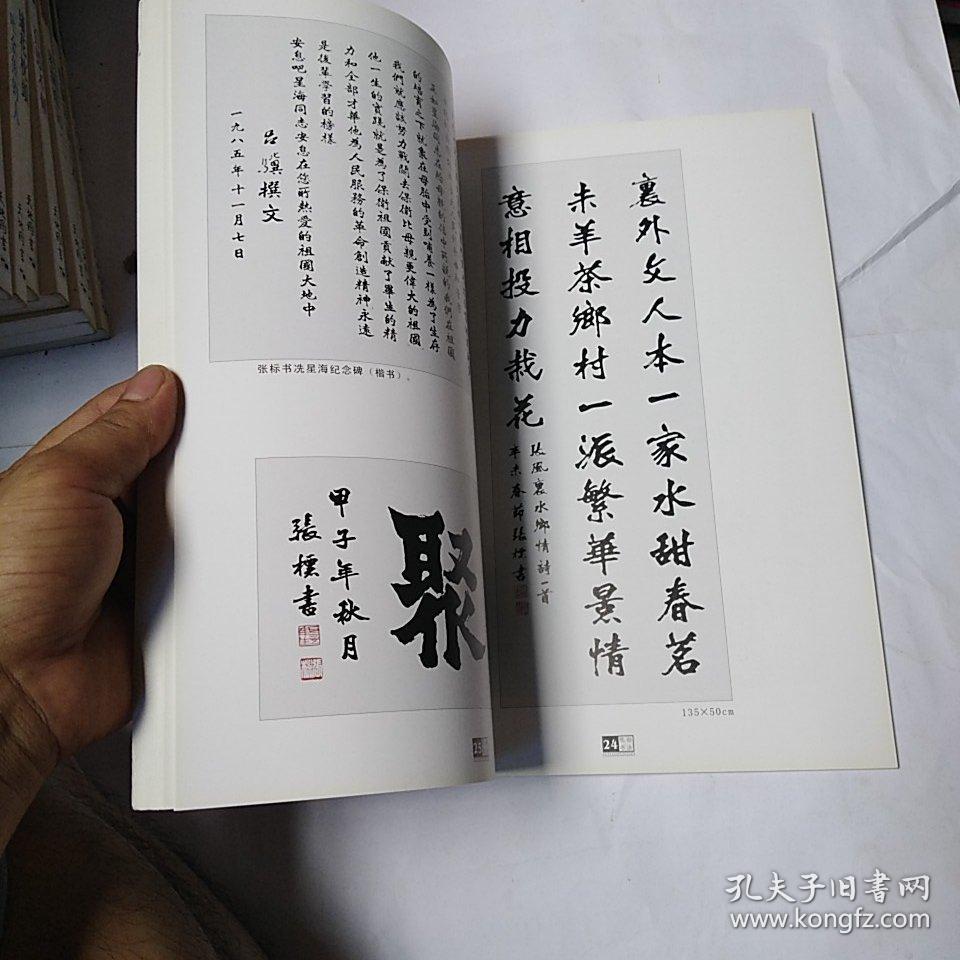 裏外文人本一家水甜春茗
未羊茶鄉村一派繁華景情
意相投力栽花
張風裏水鄉情詩一首
辛未春節張標書
135×50cm
24
的哺育之下就象在母胎中受到哺養一樣為了生存
我們就應該努力戰鬪去保衛比母親更偉大的祖國
他一生的實踐就是為了保衛祖國貢獻了畢生的精
力和全部才華他為人民服務的革命創造精神永遠
是後輩學習的榜樣
安息吧星海同志安息在您所熱愛的祖國大地中
呂驥撰文
一九八五年十一月七日
张标书冼星海纪念碑（楷书）。
聚
甲子年秋月
張標書
25
孔夫子旧書网
www.kongfz.com